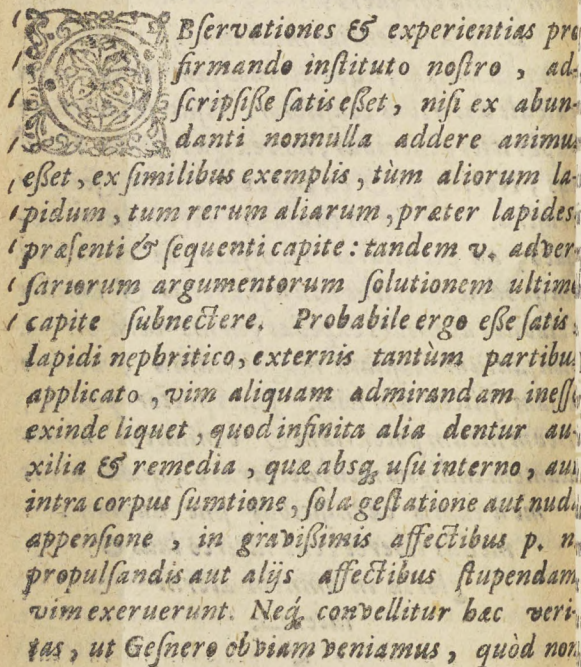 OBſervationes & experientias pro
firmando inſtituto noſtro, ad-
ſcripſiſſe ſatis eſſet, niſi ex abun-
danti nonnulla addere animu
eſſet, ex ſimilibus exemplis, tùm aliorum la-
pidum, tum rerum aliarum, præter lapides
præſenti & ſequenti capite: tandem v. adver-
ſariorum argumentorum ſolutionem ultim
capite ſubnectere. Probabile ergo eſſe ſatis,
lapidi nephritico, externis tantùm partibu
applicato, vim aliquam admirandam ineſſ
exinde liquet, quod infinita alia dentur au-
xilia & remedia, quæ absq; uſu interno, aut
intra corpus ſumtione, ſola geſtatione aut nud
appenſione, in graviſſimis affectibus p. n.
propulſandis aut alijs affectibus ſtupendam
vim exeruerunt. Neq; convellitur hæc veri-
tas, ut Geſnero obviam veniamus, quòd non